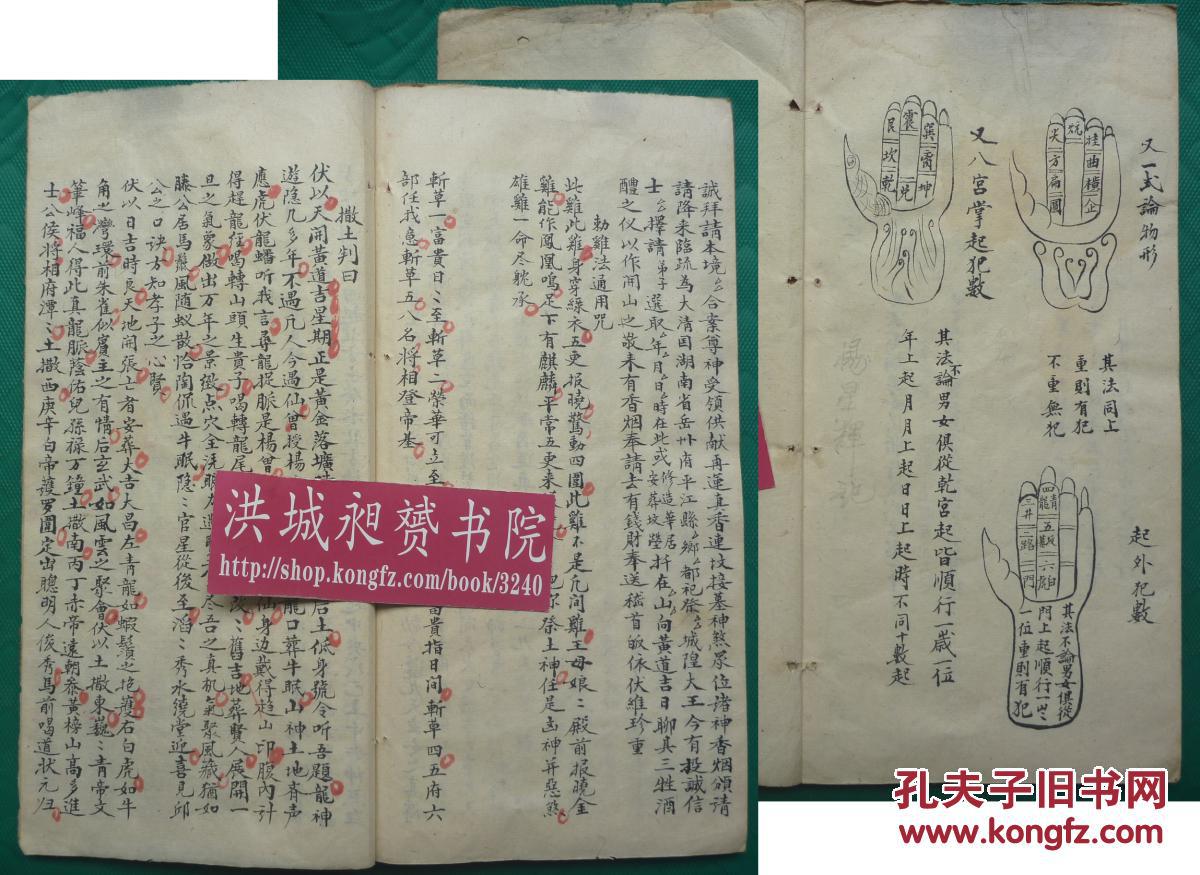 又一式論物形
尖方扁圓
挂曲横企
其法同上
重則有犯
不重無犯
又八宮掌起犯數
艮坎乾
震兌
巽离坤
其法不論男女俱從乾宮起皆順行一歲一位
年上起月月上起日日上起時不同十數起
起外犯數
其法不論男女俱從
門上起順行一岁
一位重則有犯
誠拜請本境合案尊神受領供献再運真香連坟接墓神煞眾位諸神香烟頒請
請降来臨疏為大清国湖南省岳州府平江縣鄉都祀祭城隍大王今有投誠信
士擇請弟子選取年月日時在此或修造華居安葬坟塋折在山向黄道吉日聊具三牲酒
醴之仪以作開山之敬来有香烟奉請去有錢財奉送嵇首皈依伏維珍重
勅雞法通用咒
此雞此雞身穿綠衣五更报曉驚動四圍此雞不是凡间雞王母娘〻殿前报曉金
雞能作鳳凰鳴足下有麒麟平常五更来
祭土神任是凶神并惡煞
雄雞一命尽躭承
斬草一富貴日〻至斬草二榮華可立至
富貴指日间斬草四五府六
部任我急斬草五八名将相登帝基
撒土判曰
伏以天開黄道吉星期正是黃金落壙
后土低身號令听吾題龍神
遊隐几多年不遇凡人今過仙曾授楊
龍口葬牛眠山神土地齐声
應虎伏龍蟠听我言尋龍捉脈是楊曾
仙身边戴得趋山印腹内计
得趕龍
喝轉山頭生貴子喝轉龍尾
舊吉地葬賢人展開一
旦之氣象做出万年之景徵点穴全洗眼
尽吾之真机氣聚風藏猶如
滕公居馬鬣風随蚁散恰陶侃遇牛眠隐〻官星從後至滔〻秀水繞堂迎喜見邱
公之口诀方知孝子之心賢
伏以日吉時良天地開張亡者安葬大吉大昌左青龍如蝦鬚之抱護右白虎如牛
角之灣環前朱雀似賓主之有情后玄武如風雲之聚會伏以土撒東巍〻青帝文
筆峰福人得此真龍脈蔭佑兒孫禄万鍾土撒南丙丁赤帝遠朝参黃榜山高多進
士公侯将相府潭〻土撒西庚辛白帝護罗圍定出聰明人俊秀馬前喝道状元归
洪城昶赟书院
http://shop.kongfz.com/book/3240
孔夫子旧书网
www.kongfz.com